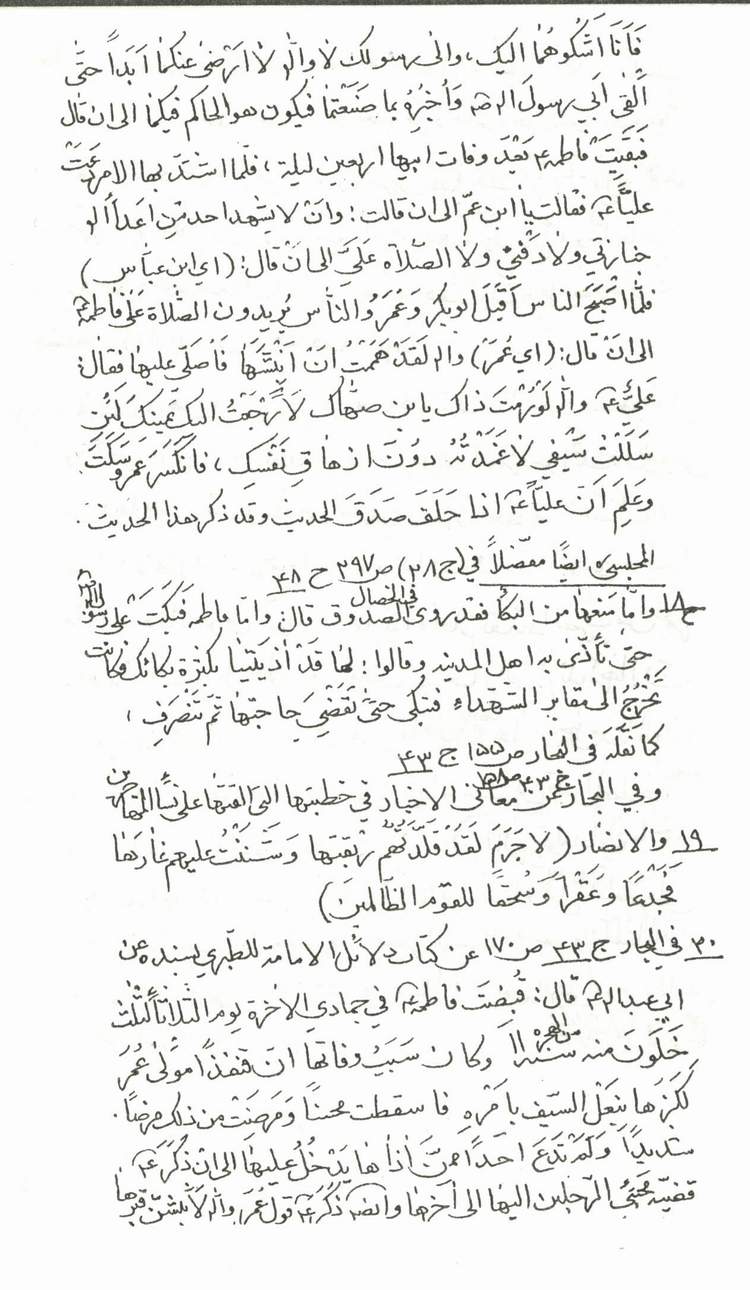 فَأَنَا اَشْكُوهُما اليك، والى رسولك لا والله لا اَرْضىٰ عنكما اَبَداً حتى
اَلْقىٰ اَبي رسولَ الله ص وَاُخْبِرُهُ بما صَنَعْتما فيكون هو الحاكم فيكما الى ان قال
فَبَقِيَتْ فاطمة ع بَعْدَ وفات ابيها اربعين ليلة، فلمّا اشتدّ بها الامر دَعَتْ
عليّاً ع فقالت يا ابن عمّ الى ان قالت: وانْ لا يشهد احد مِن اَعداء الله
جنازتي ولا دَفْني ولا الصّلاة عَلَيَّ الى انْ قال: (اي ابن عباس)
فلمّا اَصْبَحَ الناس اَقْبَلَ ابوبكر وَعُمَرُ والنّاس يُريدون الصّلاة عَلىٰ فاطمة ع
الى انْ قال: (اي عُمَرْ) والله لَقَدْ هَمَمْتُ انْ اَنْبُشَهَا فَاُصَلّي عليها فقال:
عَلِيٌّ ع والله لَوْ رُمْتَ ذاك يا بن صهّاك لَأَرْجَعْتُ اليك يَمينَكَ لَئِن
سَلَلْتُ سَيْفي لا غَمَدْتُهُ دُونَ ازهاقِ نَفْسِكِ، فانْكَسَرَ عُمَر وَسَكَتَ
وَعَلِمَ اَنّ عليّاً ع اذا حَلَفَ صَدَقَ الحديث وقد ذكر هذا الحديث.
المجلسي ره ايضاً مفصّلاً في (ج ٢٨) ص ٢٩٧ ح ٤٨
ح ١٨ وامّا مَنعها من البكاء فقد روى الصدوق في الخصال قال: وامّا فاطمه فَبَكَتْ عَلىٰ رسول الله ص
حتىٰ تأذّىٰ به اهل المدينه وقالوا: لها قَدْ اٰذَيتِنا بكثرة بكائك فكانت
تَخْرُجُ الىٰ مقابر الشّهداء فتبكى حتىٰ تَقْضِيَ حاجتها ثُمّ تَنْصَرِفِ،
كما نَقَلَهُ في البحار ص ١٥٥ ج ٤٣
وفي البحار ج ٤٣ ص ١٥٨ عن معاني الاخبار في خطبتها التى القتها على نساء المهاجرين
١٩ والانصار (لا جَرَمَ لَقَدْ قَلَّدْتُهُم رِبْقَتها وَشَنَنْتُ عليهم غارَها
فَجَدْعاً وعَقْراً وَسُحقاً للقوم الظالمينَ)
٣٠ في البحار ج ٤٣ ص ١٧٠ عن كتاب دلائل الامامة للطبري بسنده عن
ابي عبدالله ع قال: قُبِضَتْ فاطمة ع في جمادي الاخرة يوم الثّلاثاء لثلث
خَلَوْنَ منه سنة ١١ من الهجره وكان سَبَبُ وفاتها انّ قنفذاً مولىٰ عُمَرَ
لَكَزَها بِنَعْلِ السّيف بامْرِهِ فاسقطت محسناً وَمَرِضَتْ من ذلك مرضاً.
شديداً وَلَمْ تَدَع اَحَداً ممّن اٰذاها يَدْخُلُ عليها الى ان ذكَرَ ع
قضيّه مَجيئ الرّجلين اليها الى اٰخرها وايضه ذَكَرَ ع قول عُمَرَ والله لَأَنْبِشَنّ قبرها